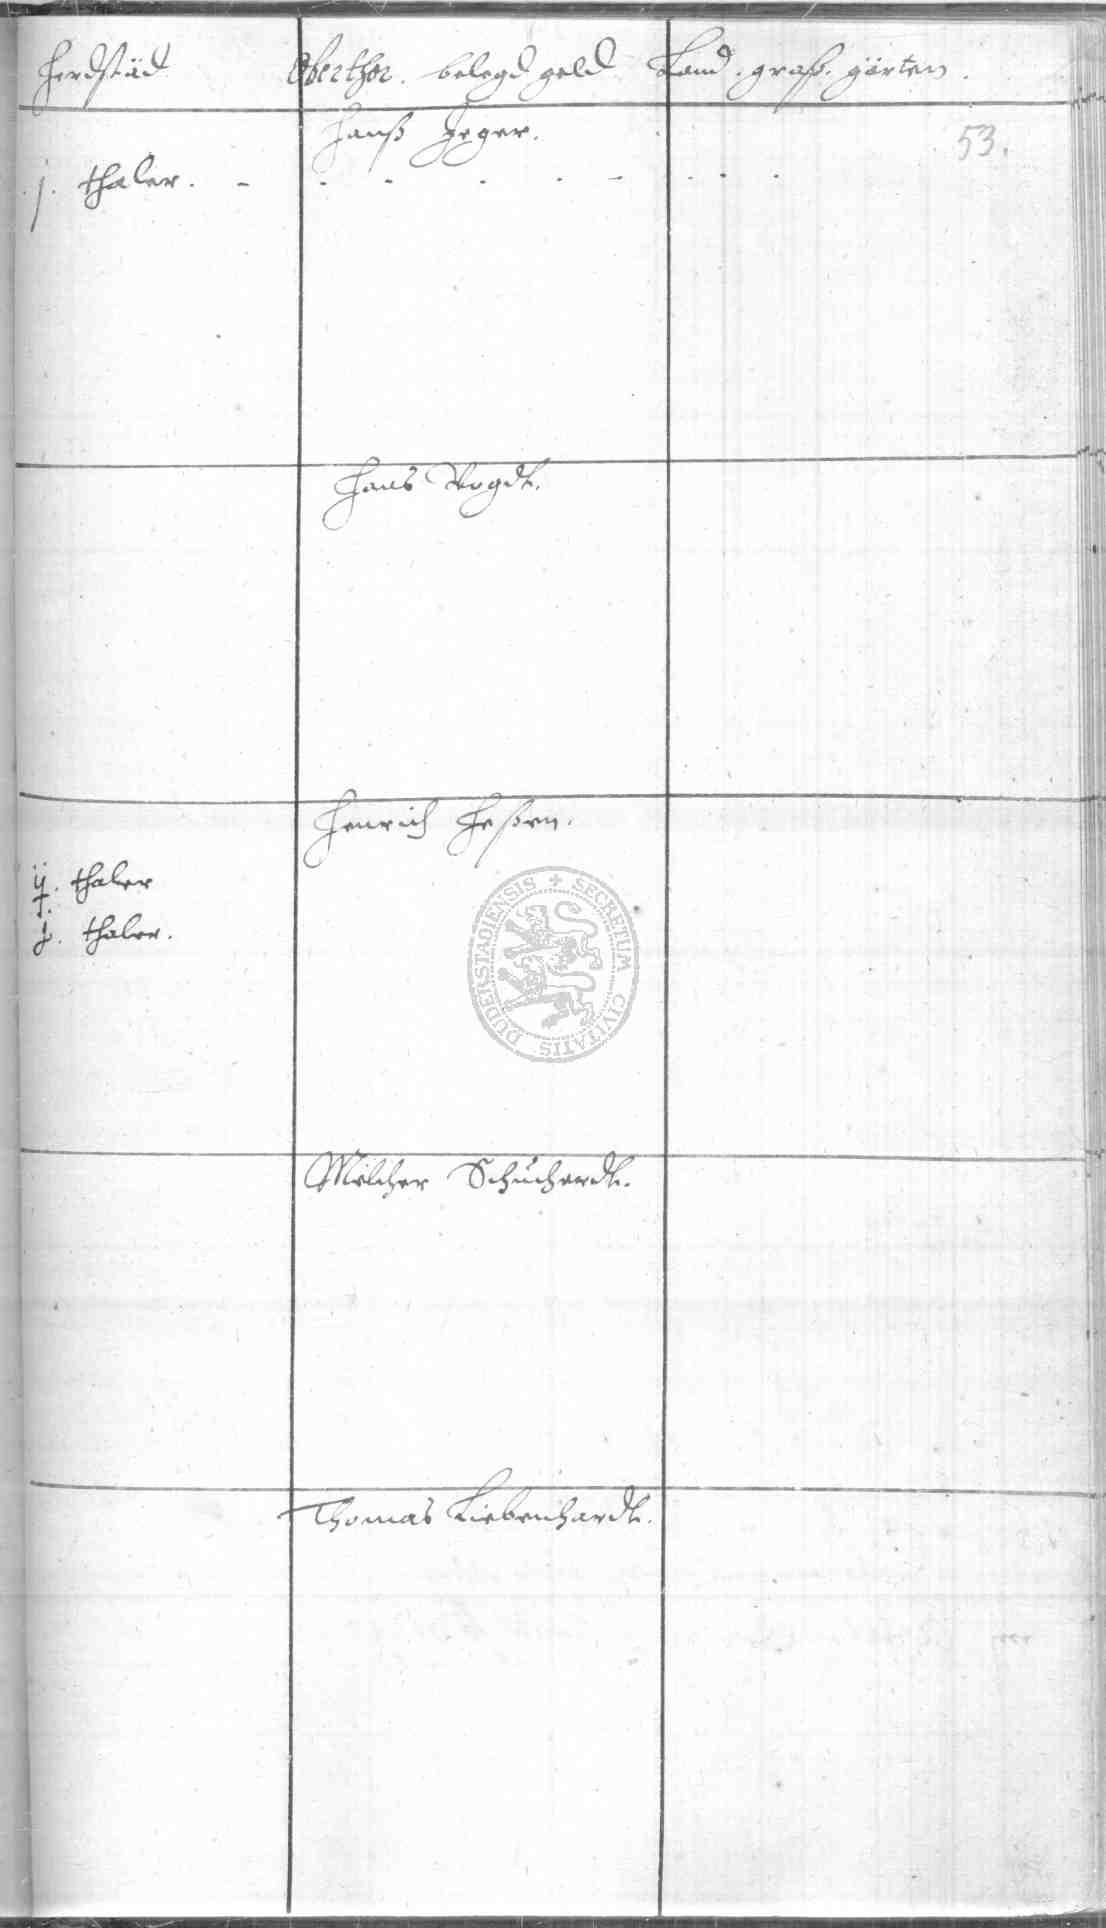 Herdstäd Oberthor. belegd geld Land. graß. gärten.
53.
Hanß Jeger.
j. thaler. - . - . . - . . .
Hans Vogdt.
Henrich Hessen.
ij. thaler
j. thaler.
SECRETUM CIVITATIS DUDERSTADIENSIS
Melcher Schuchardt.
Thomas Liebenhardt.